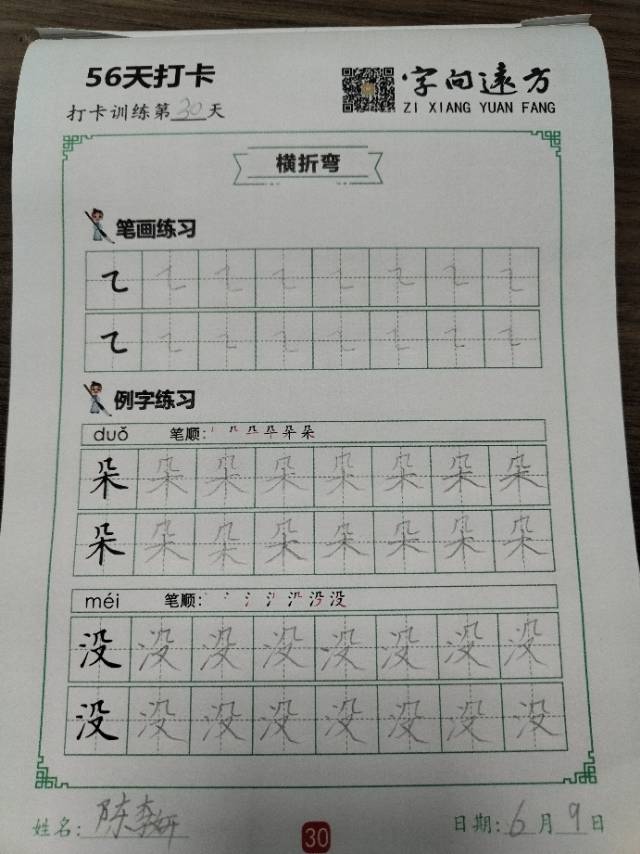 56天打卡
字向远方
ZI XIANG YUAN FANG
打卡训练第30天
横折弯
笔画练习
㇍㇍㇍㇍㇍㇍㇍㇍
㇍㇍㇍㇍㇍㇍㇍㇍
例字练习
duǒ 笔顺:
朵朵朵朵朵朵朵朵
朵朵朵朵朵朵朵朵
méi 笔顺:
没没没没没没没没
没没没没没没没没
姓名: 陈李妍
30
日期: 6月9日